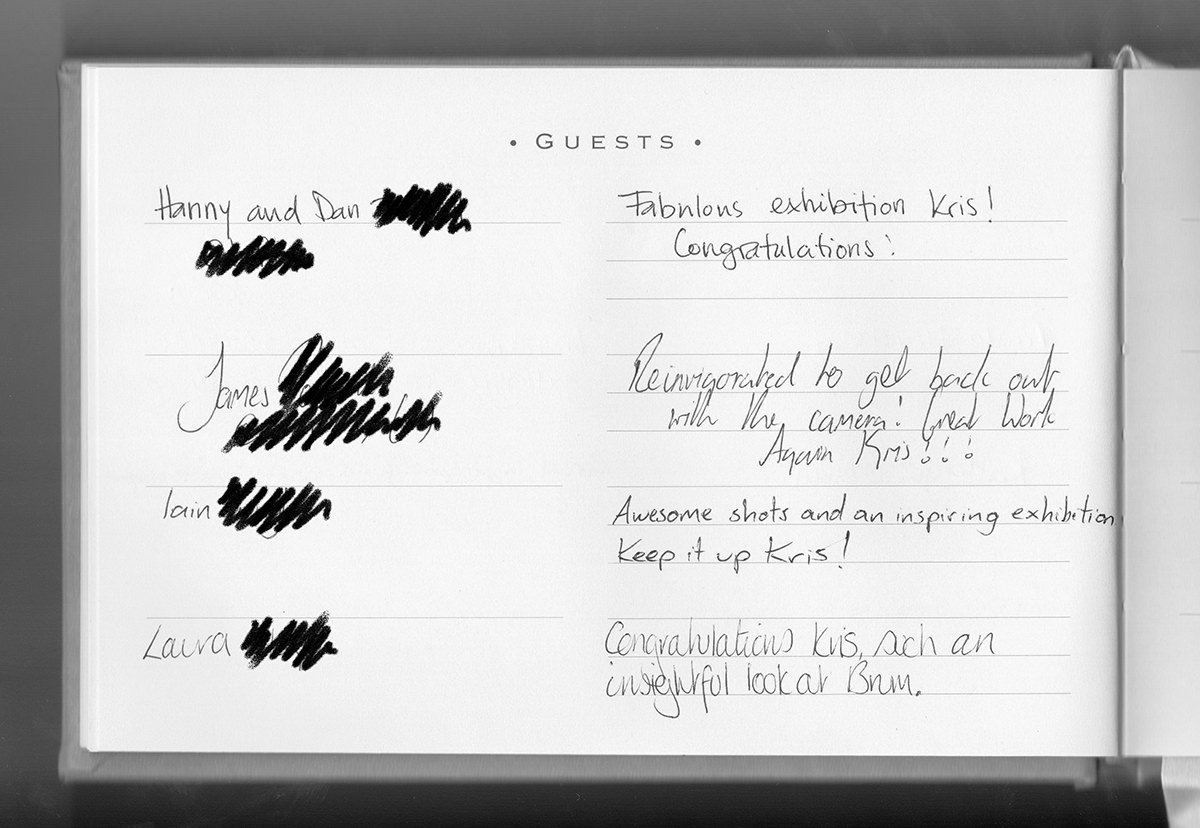 • GUESTS •
Hanny and Dan
Fabulous exhibition Kris!
Congratulations!
James
Reinvigorated to get back out
with the camera! Great Work
Again Kris!!!
Iain
Awesome shots and an inspiring exhibition
Keep it up Kris!
Laura
Congratulations Kris, such an
insightful look at Brum.